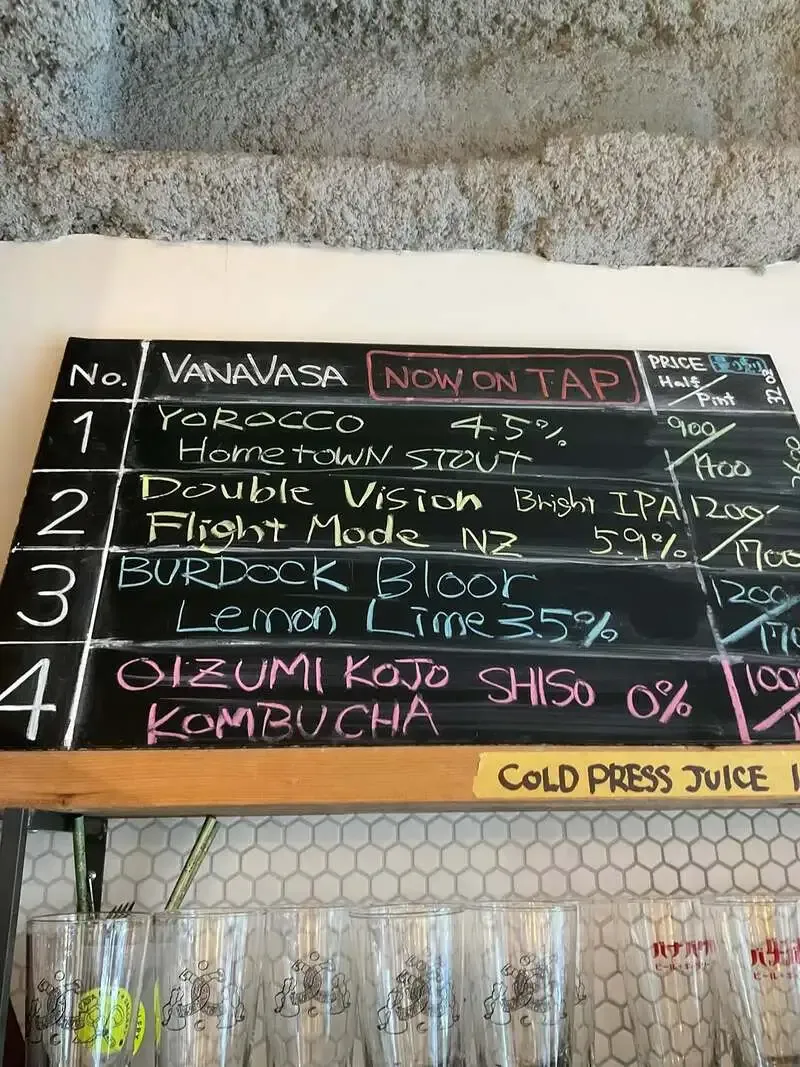 No. VANAVASA NOW ON TAP PRICE
Half/Pint
32oz
1 YOROCCO 4.5% 900/1400
HOMETOWN STOUT
2 Double Vision Bright IPA 1200/1700
Flight Mode NZ 5.9%
3 BURDOCK Bloor 1200
Lemon Lime 3.5%
4 OIZUMI KOJO SHISO 0% 1000
KOMBUCHA
COLD PRESS JUICE